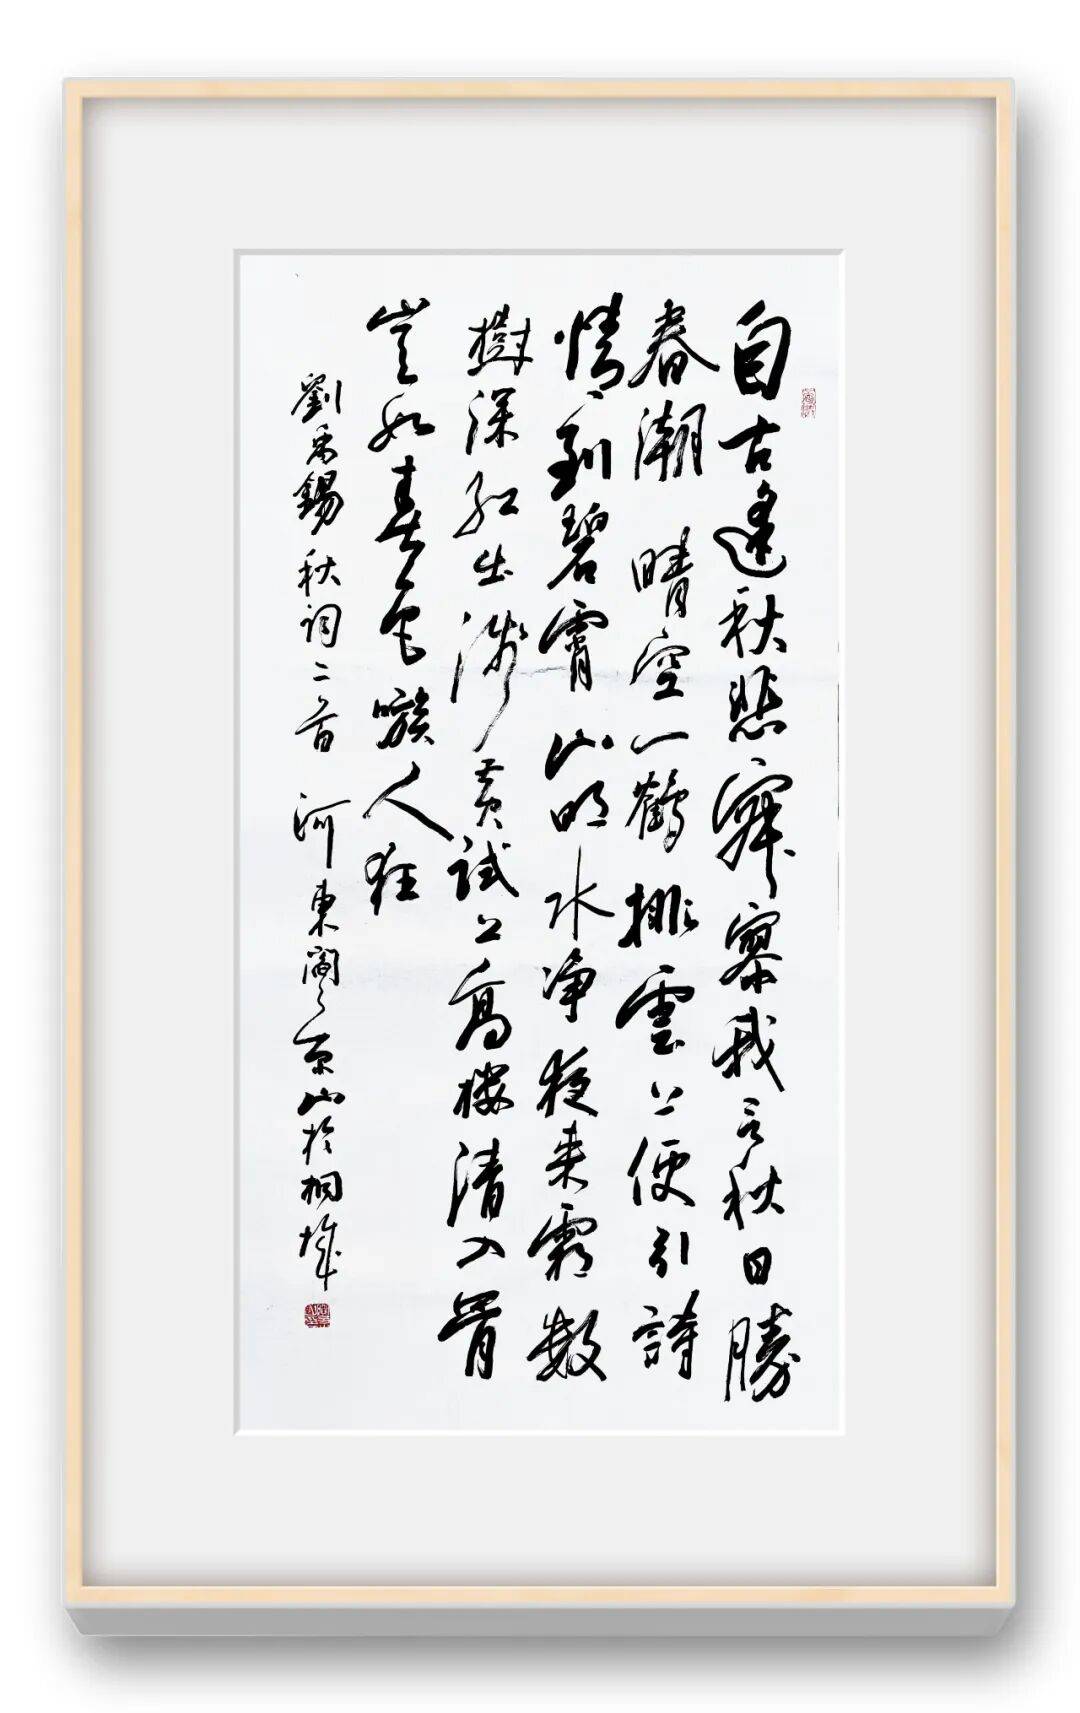 自古逢秋悲寂寥我言秋日勝
春潮晴空一鶴排雲上便引詩
情到碧霄山明水净夜来霜数
樹深红出浅黄試上高楼清入骨
岂如春色嗾人狂
劉禹錫秋詞二首 河東閻京山於桐城